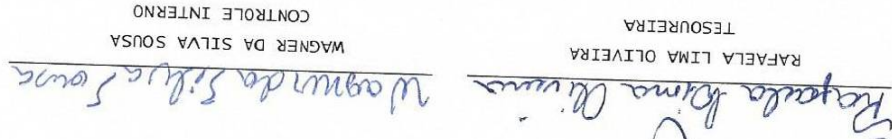 Rafaela Lima Oliveira
RAFAELA LIMA OLIVEIRA
TESOUREIRA
Wagner da Silva Sousa
WAGNER DA SILVA SOUSA
CONTROLE INTERNO